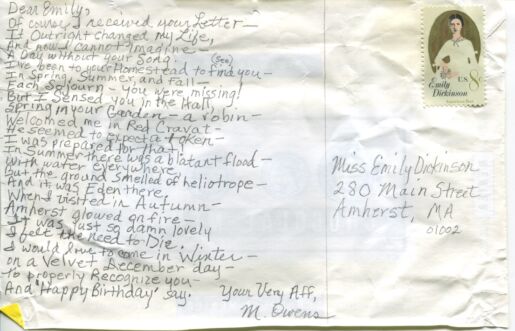 Dear Emily,
Of course I received your Letter—
It Outright changed my Life,
And now I cannot imagine—
A Day without your Song.
I've been to your Homestead to find you— (See)
In Spring, Summer, and Fall—
Each Sojourn—you were missing!
But I Sensed you in the Hall,
Spring in your Garden—a robin—
Welcomed me in Red Cravat—
He seemed to expect a Token—
I was prepared for that.
In Summer there was a blatant flood—
With water everywhere,
But the ground smelled of heliotrope—
And it was Eden there,
When I visited in Autumn—
Amherst glowed on fire—
It was just so damn lovely
I felt the need to Die.
I would love to come in Winter—
on a Velvet December day—
To properly Recognize you—
And 'Happy Birthday' say.
Your Very Aff,
M. Owens
Emily
Dickinson
U.S. 8c
Miss Emily Dickinson
280 Main Street
Amherst, MA
01002